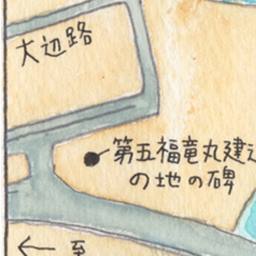 大辺路
第五福竜丸建造
の地の碑
至